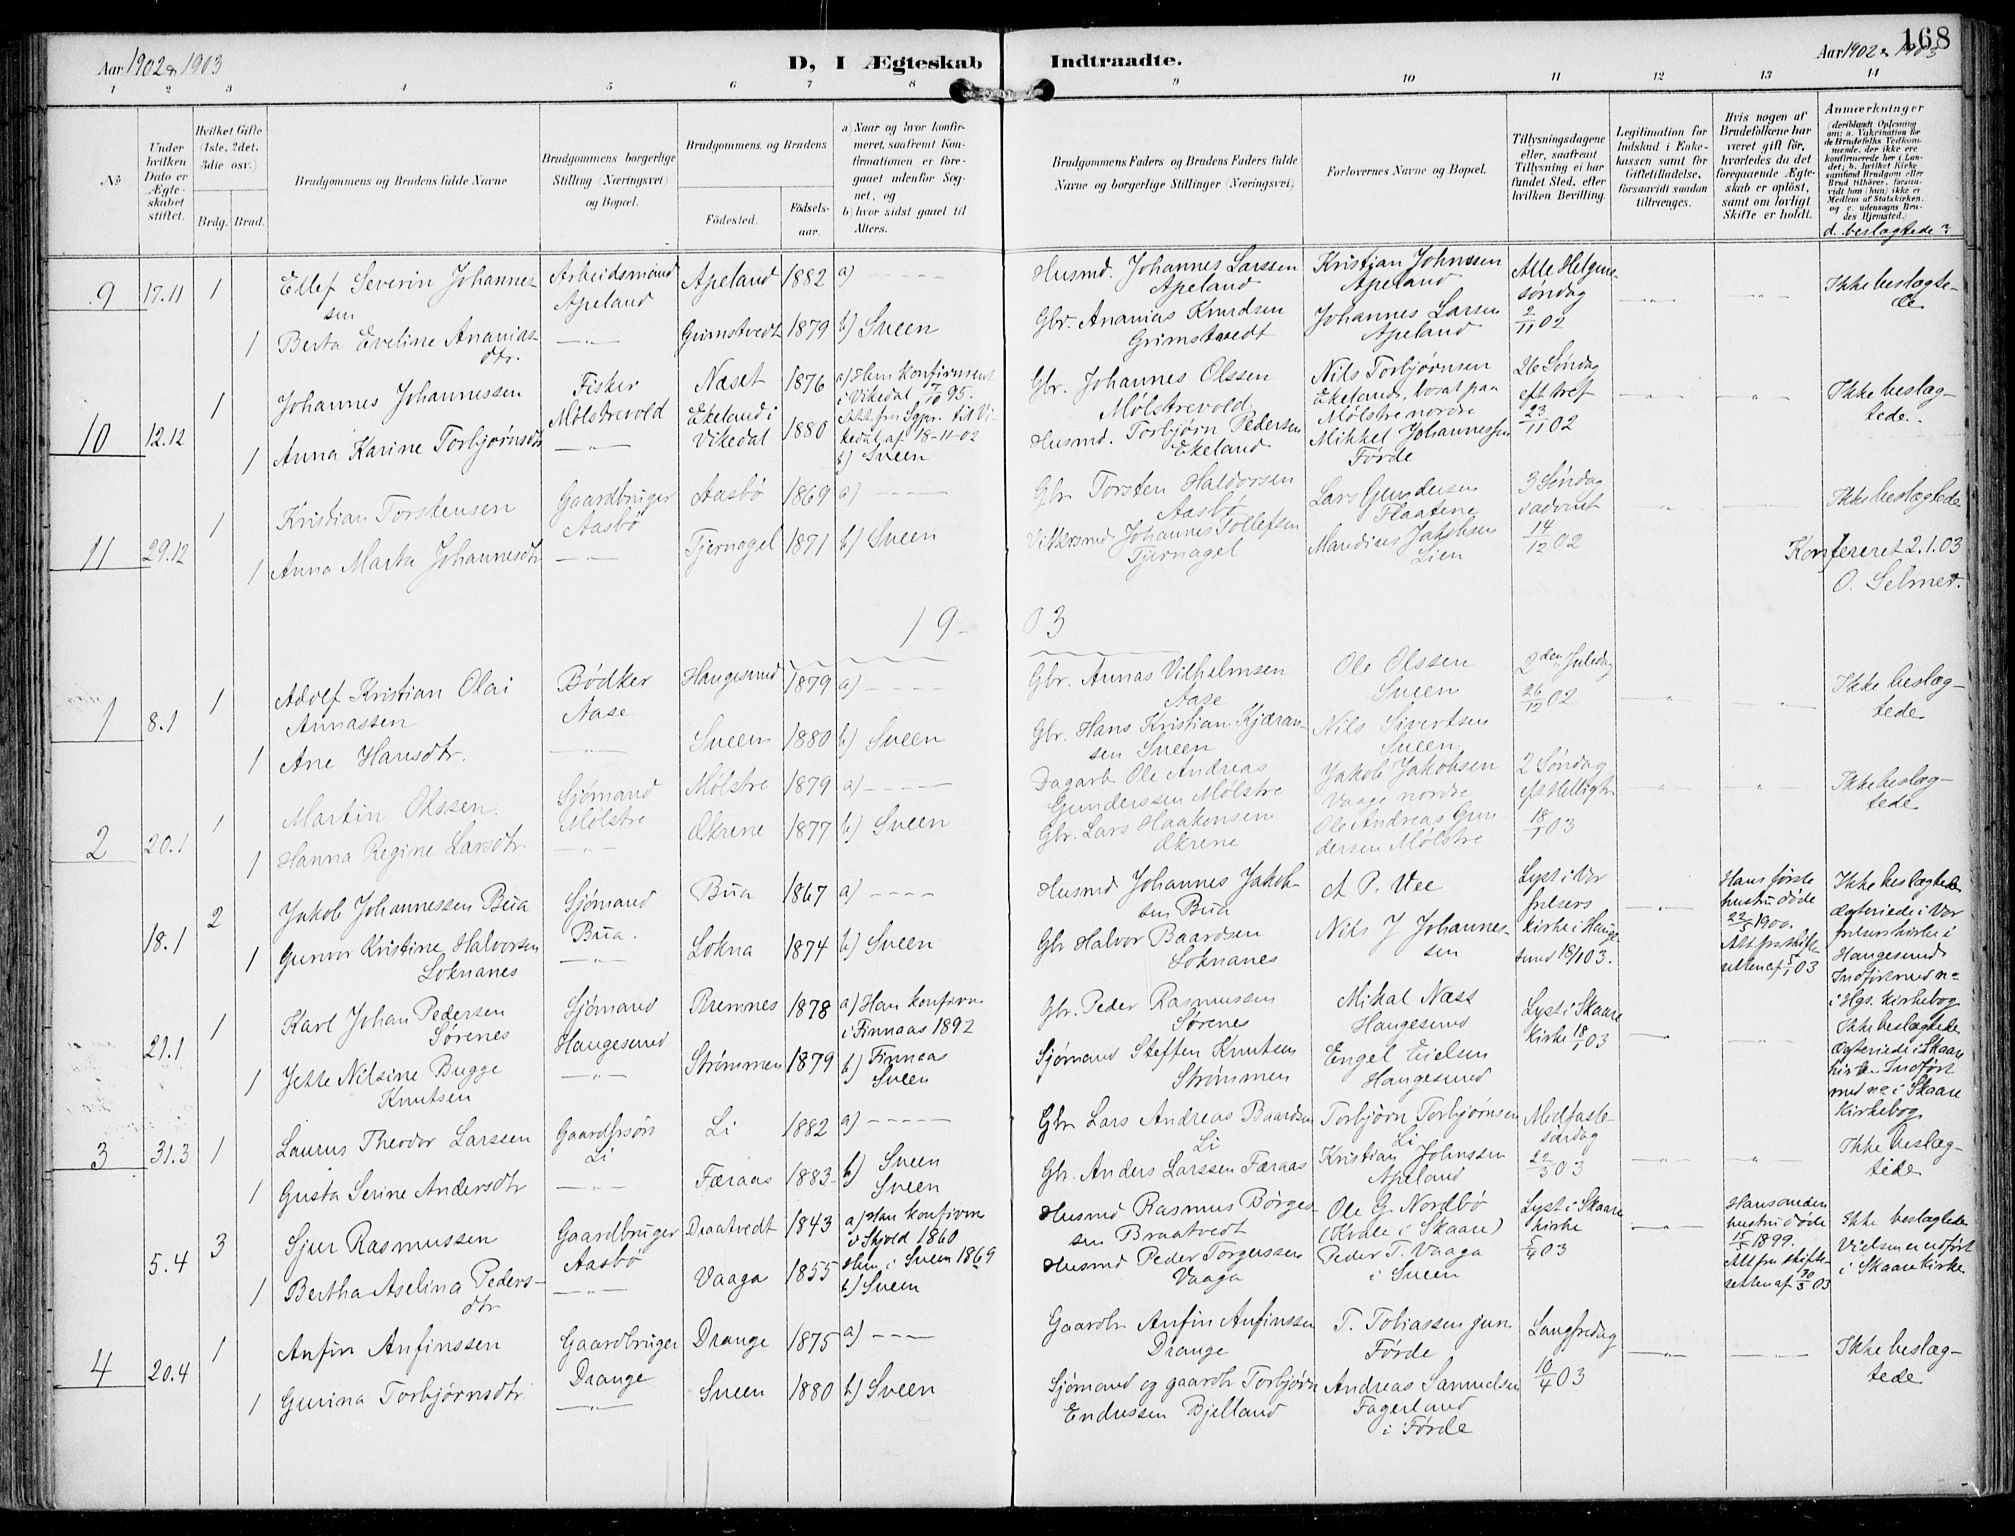 168
Aar 1902 & 1903
D, I Ægteskab Indtraadte.
Aar 1902 & 1903
1 2 3 4 5 6 7 8 9 10 11 12 13 14
No
Under hvilken Dato er Ægteskabet stiftet.
Hvilket Gifte (1ste, 2det, 3die osv.)
Brdg. Brud.
Brudgommens og Brudens fulde Navne
Brudgommens borgerlige Stilling (Næringsvei) og Bopæl.
Brudgommens og Brudens
Fødested.
Fødselsaar.
a) Naar og hvor konfirmeret, saafremt Konfirmationen er foregaaet udenfor Sognet, og
b) hvor sidst gaaet til Alters.
Brudgommens Faders og Brudens Faders fulde Navne og borgerlige Stillinger (Næringsvei)
Forlovernes Navne og Bopæl.
Tillysningsdagene eller, saafremt Tillysning ei har fundet Sted, efter hvilken Bevilling.
Legitimation for Indskud i Enkekassen samt for Giftetilladelse, forsaavidt saadan tiltrænges.
Hvis nogen af Brudefolkene har været gift før, hvorledes da det foregaaende Ægteskab er opløst, samt om lovligt Skifte er holdt.
Anmærkninger
(deriblandt Oplysning om: a. Vakcination for de Brudefolks Vedkommende, der ikke ere konfirmerede her i Landet; b. hvilket Kirkesamfund Brudgom eller Brud tilhører, forsaavidt han (hun) ikke er Medlem af Statskirken, og c. udensogns Brudes Hjemsted.)
d. beslægtede?
9 17.11 1 Ellef Severin Johannessen Arbeidsmand Apeland Apeland 1882 a) - - - - Husmd. Johannes Larssen Apeland Kristian Johnssen Apeland Alle Helgens søndag 2/11 02 Ikke beslægtede
1 Berta Eveline Ananiasdtr. Grimstvedt 1879 b) Sveen Gbr. Ananias Knudsen Grimstvedt Johannes Larsen Apeland
10 12.12 1 Johannes Johannessen Fisker Mølstrevold Næset 1876 a) Hun konfirmeret i Vikedal 7/10 95. Gbr. Johannes Olssen Mølstrevold Nils Torbjørnsen Ekeland, bosat paa Mølstre nordre 26 Søndag eft tref 23/11 02 Ikke beslægtede.
1 Anna Karine Torbjørnsdtr Ekeland i Vikedal 1880 Att. fra Sgpr. til Vikedal af 18-11-02 b) Sveen Husmd. Torbjørn Pedersen Ekeland Mikkel Johannessen Førde
11 29.12 1 Kristian Torstensen Gaardbruger Aasbø Aasbø 1869 a) - - - - Gbr Torsten Haldorsen Aasbø Lars Gundersen Flaatene 3 Søndag i advent 14/12 02 Ikke beslægtede
1 Anna Marta Johannesdtr Tjernagel 1871 b) Sveen Johannes Tollefsen Tjernagel Mandius Jakobsen Lien
Konfereret 2.1.03
O. Selmer.
19-03
1 8.1 1 Adolf Kristian Olai Annassen Bødker Aase Haugesund 1879 a) - - - - Gbr. Annas Vilhelmsen Aase Ole Olssen Sveen 2den Juledag 26/12 02 Ikke beslægtede
1 Ane Hansdtr. Sveen 1880 b) Sveen Gbr. Hans Kristian Kjæransen Sveen Nils Sivertsen Sveen
2 20.1 1 Martin Olssen. Sjømand Mølstre Mølstre 1879 a) - - - - Dagarb Ole Andreas Gunderssen Mølstre Jakob Jakobsen Vaage nordre 2 Søndag eft Helligtr 18/1 03 Ikke beslægtede
1 Hanna Regine Larsdtr. Økrene 1877 b) Sveen Gbr. Lars Haakonsen Økrene Ole Andreas Gundersen Mølstre
18.1 2 Jakob Johannessen Bua Sjømand Bua. Bua 1867 a) - - - - Husmd Johannes Jakobsen Bua A P. Vee Lyst i Vor frelsers kirke i Haugesund 18/1 03. Hans første hustru døde 22/5 1900. Att fra skifteretten af 5/1 03 Ikke beslægtede Ægteviede i Vor frelsers kirke i Haugesund. Indført med no i Hgs. kirkebog
1 Gunvor Kristine Halvorsen Loknanes Lokna 1874 b) Sveen Gbr Halvor Baardsen Loknanes Nils J Johannessen
21.1 1 Karl Johan Pedersen Sørenes Sjømand Haugesund Bremnes 1878 a) Han konfirm i Finnaas 1892 Gbr. Peder Rasmussen Sørenes Mikal Næss Haugesund Lyst i Skaare kirke 18/1 03 Ikke beslægtede Ægteviede i Skaare kirke. Indført med no i Skaare Kirkebog
1 Jette Nilsine Bugge Knutsen Strømmen 1879 b) Finnaas Sveen Sjømand Steffen Knutsen Strømmen Engel Eielsen Haugesund
3 31.3 1 Laurus Theodor Larssen Gaardbrsøn Li Li 1882 a) - - - - Gbr Lars Andreas Baardsen Li Torbjørn Torbjørnsen Li Midfastesøndag 22/3 03 Ikke beslægtede
1 Gusta Serine Andersdtr Færaas 1883 b) Sveen Sveen Gbr. Anders Larssen Færaas Kristian Johnssen Apeland
5.4 3 Sjur Rasmussen Gaardbruger Aasbø Draatvedt 1843 a) Han konfirm i Skjold 1860 Husmd Rasmus Børgesen Braatvedt Ole G Nordbø (Kvale i Skaare) Lyst i Skaare kirke 5/4 03 Hans anden hustru døde 15/5 1899. Att fra skifteretten af 30/3 03 Ikke beslægtede Vielsen er udført i Skaare Kirke
1 Bertha Aselina Pedersdtr Vaaga 1855 Hun i Sveen 1869 b) Sveen Husmd Peder Torgerssen Vaaga Peder T. Vaaga i Sveen
4 20.4 1 Anfin Anfinssen Gaardbruger Drange Drange 1875 a) - - - - Gaardbr Anfin Anfinssen Drange T. Tobiassen jun Førde Langfredag 10/4 03 Ikke beslægtede
1 Gurina Torbjørnsdtr. Sveen 1880 b) Sveen Sjømand og gaardbr Torbjørn Endressen Bjelland Andreas Samuelsen Fagerland i Førde